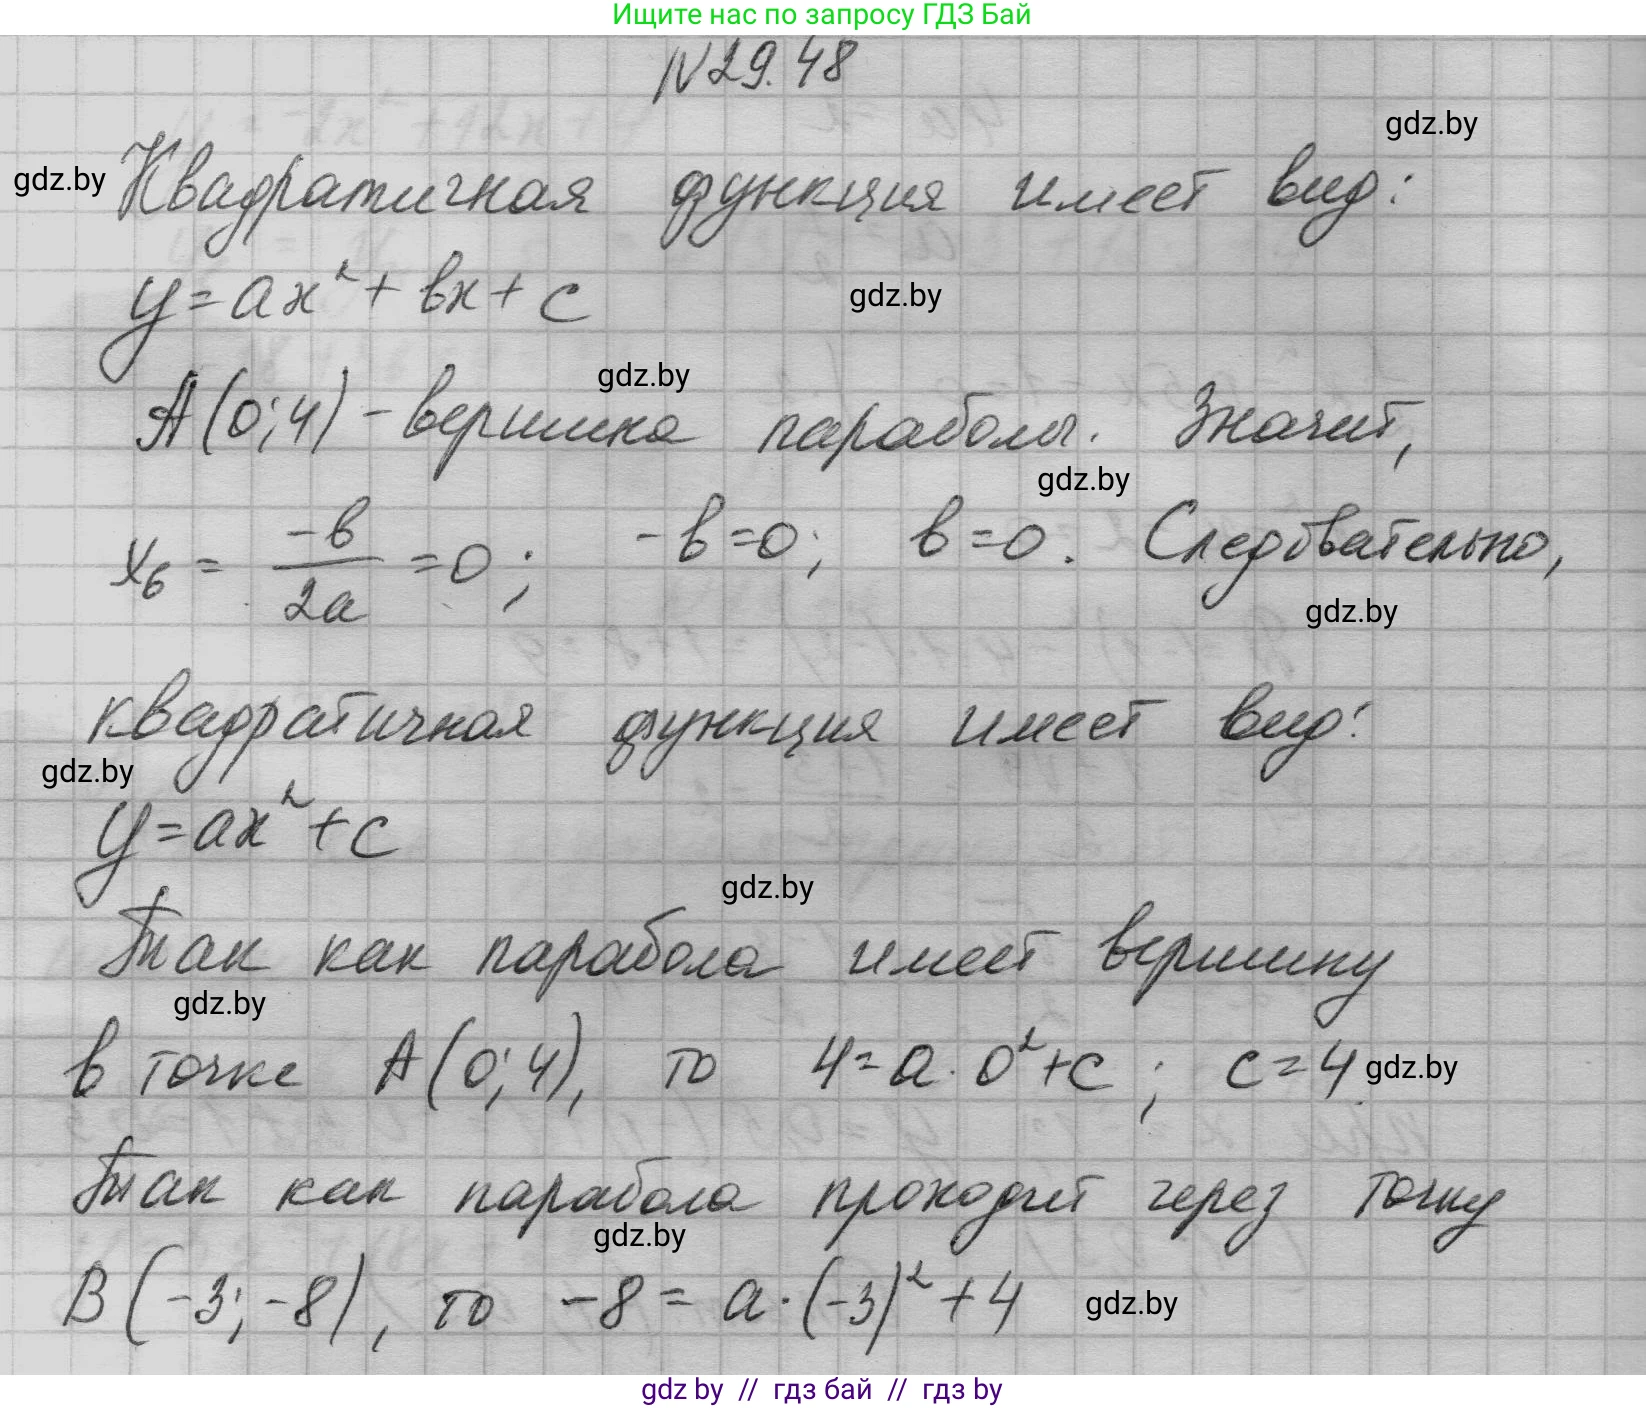 Ищите нас по запросу ГДЗ Бай
N29.48
gdz.by
gdz.by Квадратичная функция имеет вид:
y=ax²+вx+c
gdz.by
gdz.by
A(0;4)-вершина параболы. Значит,
gdz.by
x₆ = -в/2a =0; -в=0; в=0. Следовательно,
gdz.by
квадратичная функция имеет вид:
gdz.by
y=ax²+c
gdz.by
Так как парабола имеет вершину
gdz.by
в точке A(0;4), то 4=a·0²+c; c=4. gdz.by
Так как парабола проходит через точку
gdz.by
B(-3;-8), то -8=a·(-3)²+4 gdz.by
gdz by // гдз бай // гдз by